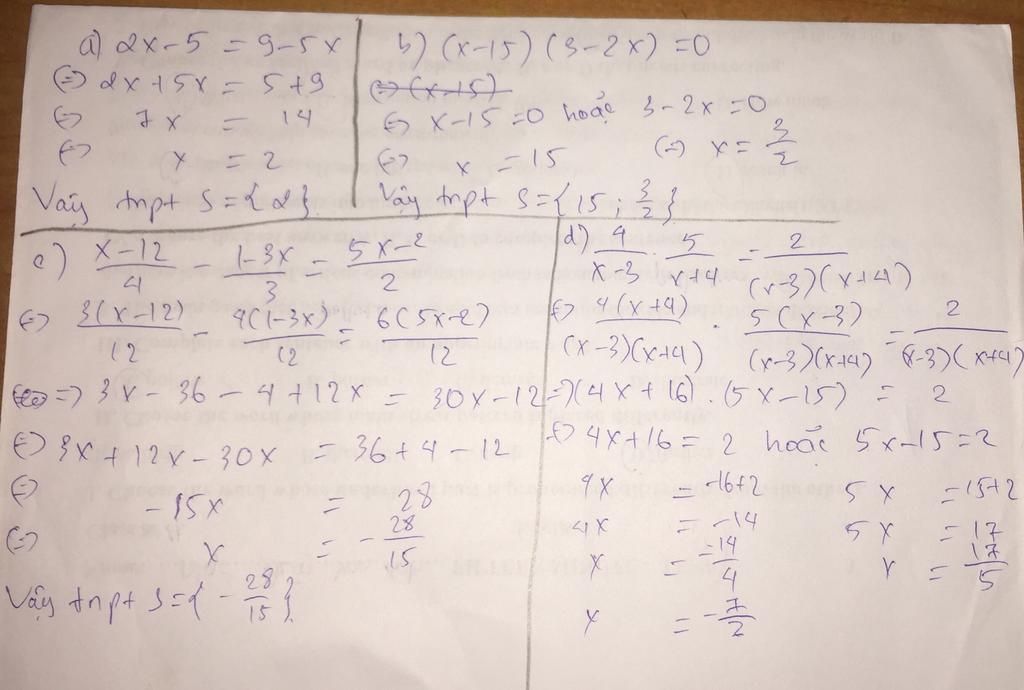 a) 2x-5 = 9-5x
(=) 2x+5x = 5+9
(=) 7x = 14
(=) x = 2
Vậy tnpt S={2}.
b) (x-15) (3-2x) =0
(=) (x-15)
(=) x-15 =0 hoặc 3-2x=0
(=) x = 15 (=) x = 3/2
Vậy tnpt S={15, 3/2}
c) (x-12)/4 - (1-3x)/3 = (5x-2)/2
(=) 3(x-12)/12 - 4(1-3x)/12 = 6(5x-2)/12
=) 3x - 36 - 4 +12x = 30x-12
(=) 3x+12x-30x = 36+4-12
(=) -15x = 28
(=) x = -28/15
Vậy tnpt S={-28/15}.
d) 4/(x-3) . 5/(x+4) = 2/((x-3)(x+4))
(=) 4(x+4)/((x-3)(x+4)) . 5(x-3)/((x-3)(x+4)) = 2/((x-3)(x+4))
=) (4x+16) . (5x-15) = 2
(=) 4x+16 = 2 hoặc 5x-15=2
4x = -16+2 5x =15+2
4x = -14 5x =17
x = -14/4 x = 17/5
x = -7/2